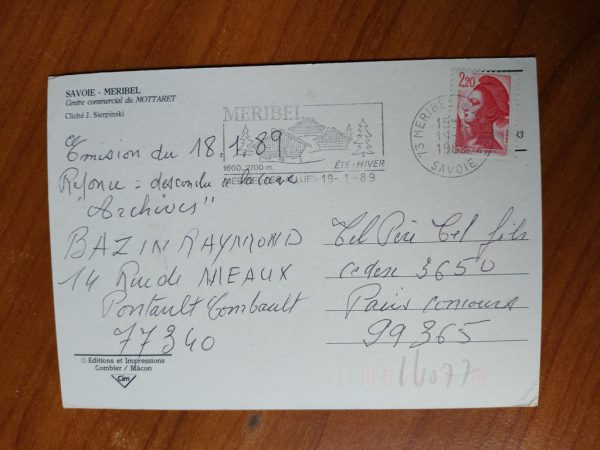 SAVOIE - MERIBEL
Centre commercial du MOTTARET
Cliché J. Sierpinski
MERIBEL
ÉTÉ-HIVER
1600.2700 m.
19-1-89
73 MERIBEL
SAVOIE
2,20
Emission du 18.1.89
Réponse : descendu à la cave
"Archives"
BAZIN RAYMOND
14 Rue de MEAUX
Pontault Combault
77340
Tel Père Tel fils
cedex 3650
Paris concours
99365
© Editions et Impressions
Combier / Mâcon
Cim
16077